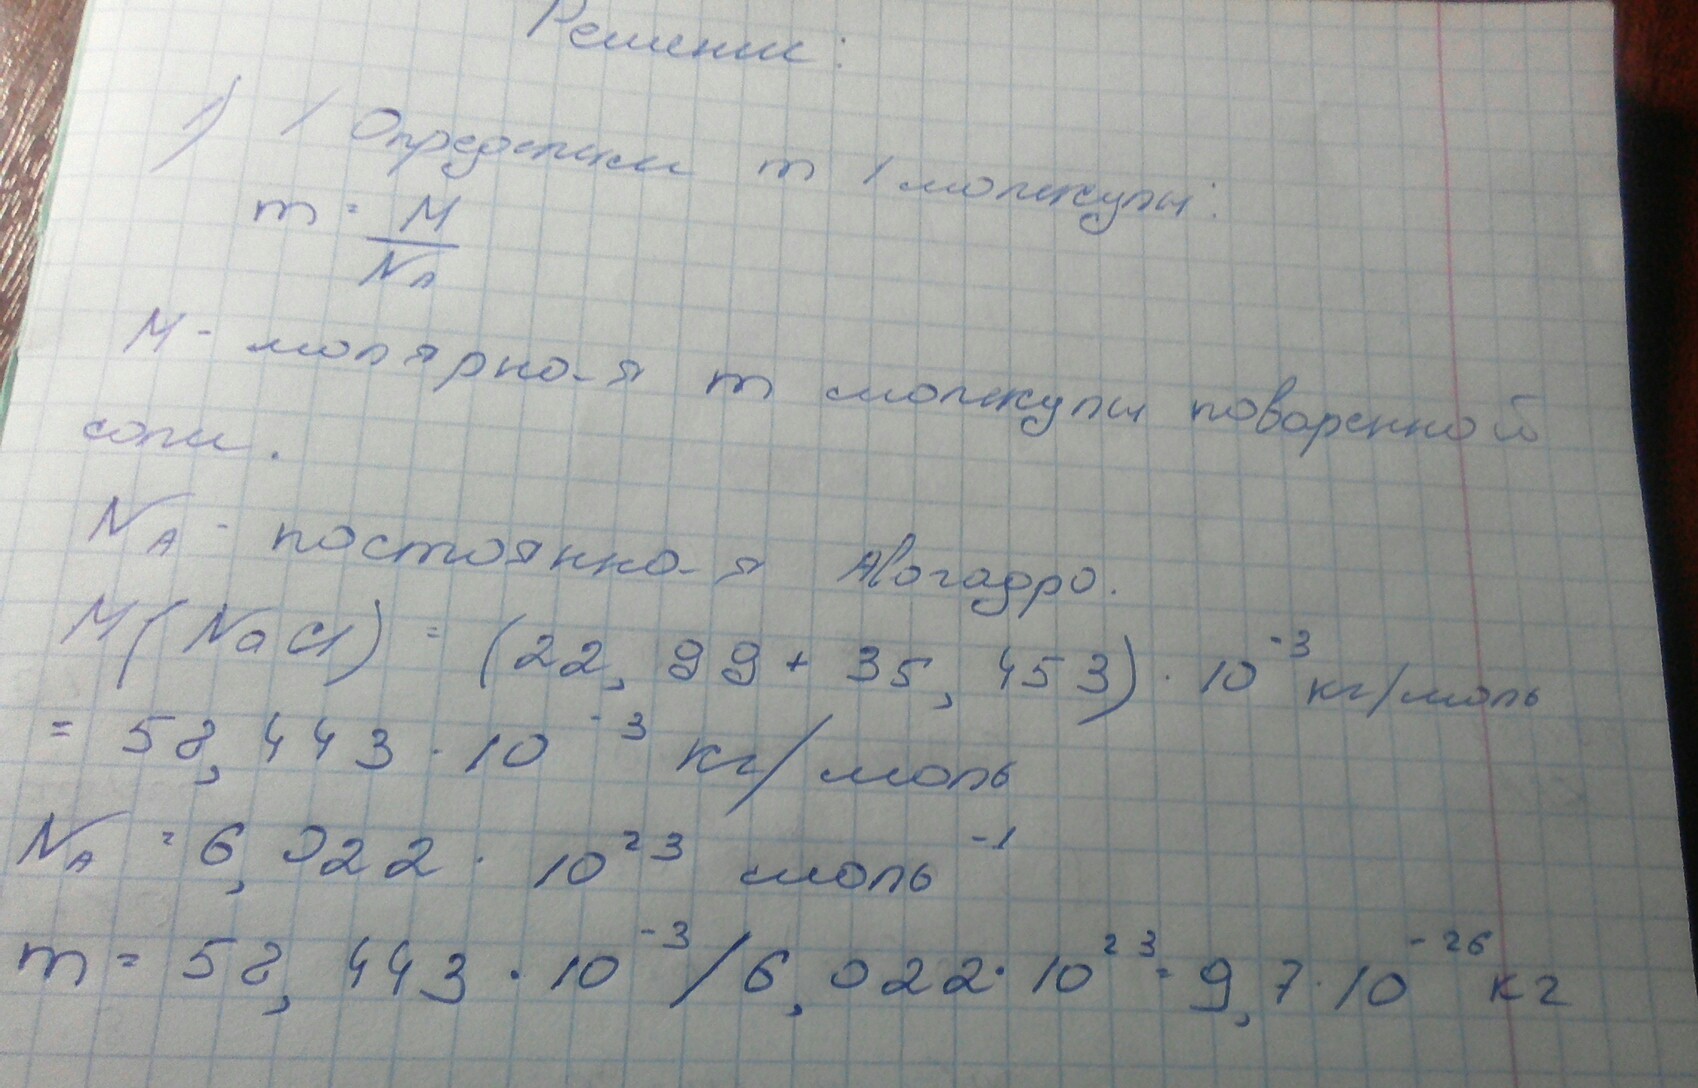 Решение:
1) 1 Определим m 1 молекулы:
m = M
N_A
M - молярно-я m молекулы поваренной
соли.
N_A - постоянно-я Авогадро.
M(NaCl) = (22,99 + 35,453) · 10⁻³ кг/моль
= 58,443 · 10⁻³ кг/моль
N_A = 6,022 · 10²³ моль⁻¹
m = 58,443 · 10⁻³ / 6,022 · 10²³ = 9,7 · 10⁻²⁶ кг